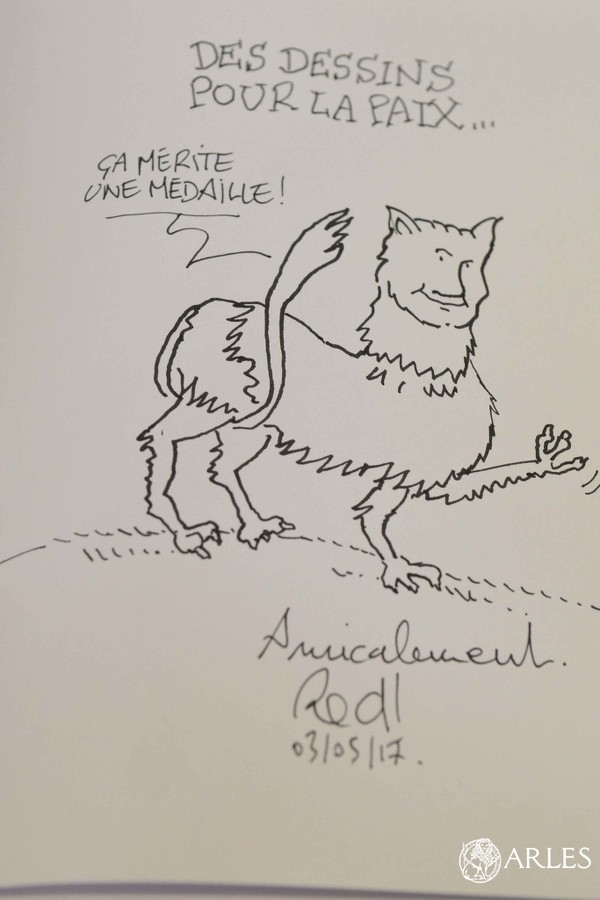 DES DESSINS
POUR LA PAIX...
ÇA MÉRITE
UNE MÉDAILLE!
Amicalement.
Red!
03/05/17.
ARLES